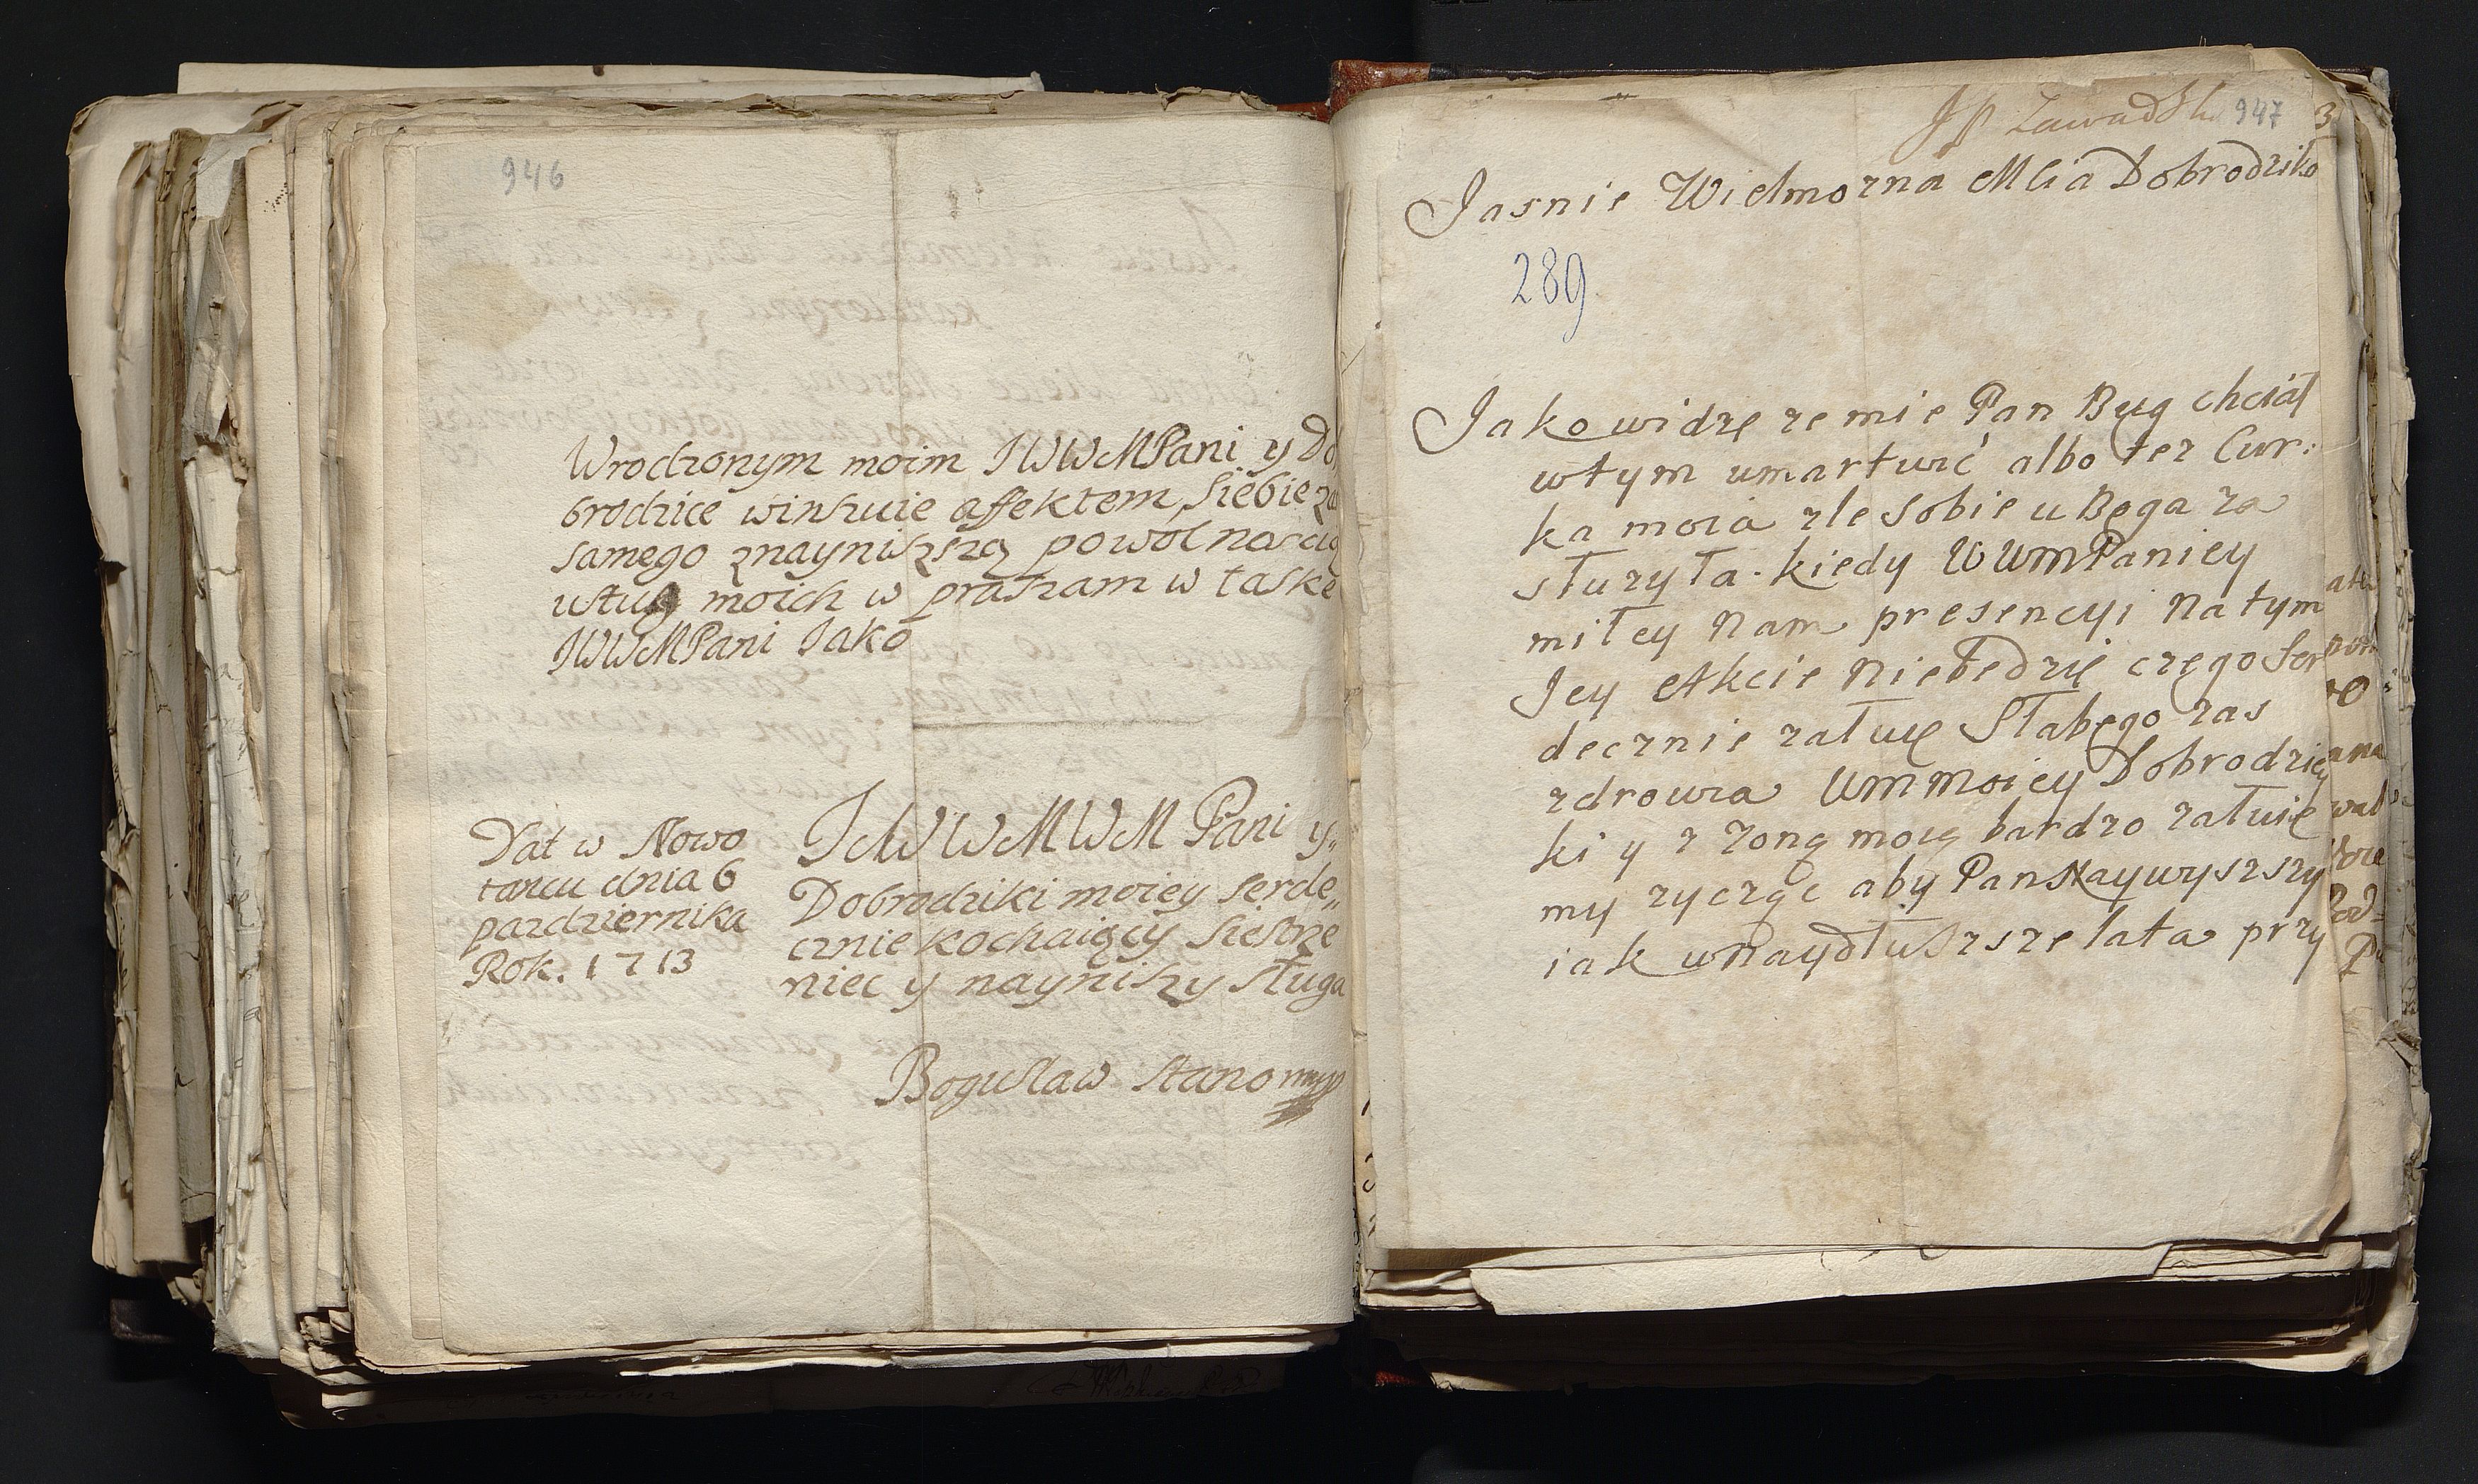 946
Wrodzonym moim JWWMPani y Do
brodzice winszuie affektem, Siebie za
samego znayniszszą powolnascią
usług moich w praszam w łaske
JWWMPani Jako
Dat w Nowo
tancu dnia 6
pazdziernika
Rok. 1713
JMWWMWM Pani y
Dobrodziki moiey serde„
cznie kochaiący Siestrze
niec y nayniszy sługa
Bogusław Stano
947
Jasnie Wielmozna MCia Dobrodziko
289.
Jako widzę ze mie Pan Bug chciał
wtym umartwić albo tez Cur:
ka moia zle sobie u Boga za
słuzyła. kiedy WWMPaniey
miłey nam presencyi na tym
Jey Akcie niebędzię czego Ser
decznie załuię Słabego zas
zdrowia WMmoiey Dobrodziey
ki y z Zoną moią bardzo załuie
my zycząc aby Pan Naywyszszy
iak w naydłuszsze lata przy